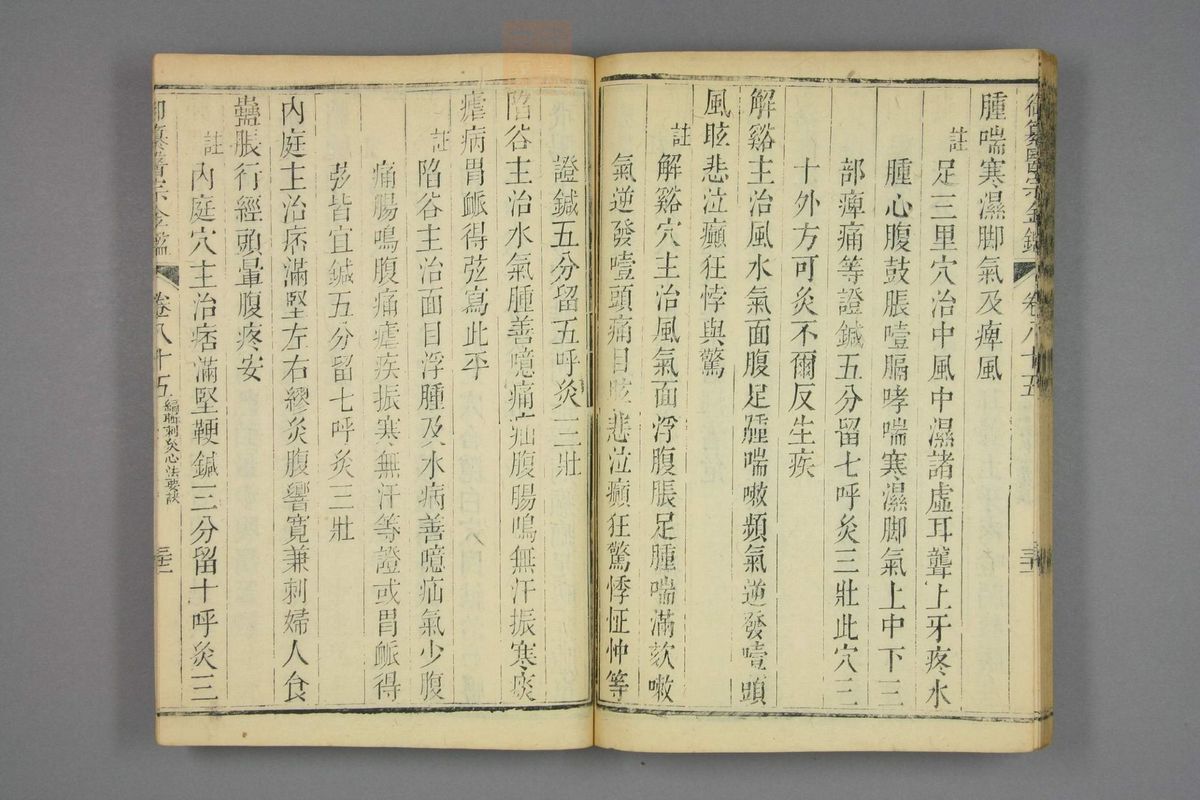 御纂醫宗金鑑 卷八十五
腫喘寒濕脚氣及痺風
註 足三里穴治中風中濕諸虛耳聾上牙疼水
腫心腹鼓脹噎膈哮喘寒濕脚氣上中下三
部痺痛等證鍼五分留七呼灸三壯此穴三
十外方可灸不爾反生疾
解谿主治風水氣面腹足腫喘嗽頻氣逆發噎頭
風眩悲泣癲狂悸與驚
註 解谿穴主治風氣面浮腹脹足腫喘滿欬嗽
氣逆發噎頭痛目眩悲泣癲狂驚悸怔忡等
證鍼五分留五呼灸三壯
陷谷主治水氣腫善噫痛疝腹腸鳴無汗振寒痰
瘧病胃䘑得弦寫此平
註 陷谷主治面目浮腫及水病善噫疝氣少腹
痛腸鳴腹痛瘧疾振寒無汗等證或胃䘑得
弦皆宜鍼五分留七呼灸三壯
內庭主治痞滿堅左右繆灸腹響寬兼刺婦人食
蠱脹行經頭暈腹疼安
註 內庭穴主治痞滿堅鞕鍼三分留十呼灸三
御纂醫宗金鑑 卷八十五 編輯刺灸心法要訣